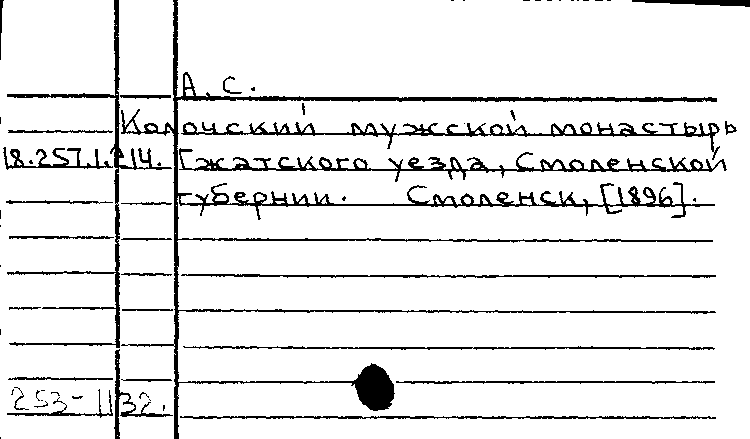 А. С.
Колочский мужской монастырь
18.257.1.214. Гжатского уезда, Смоленской
губернии. Смоленск, [1896].
253-1132.